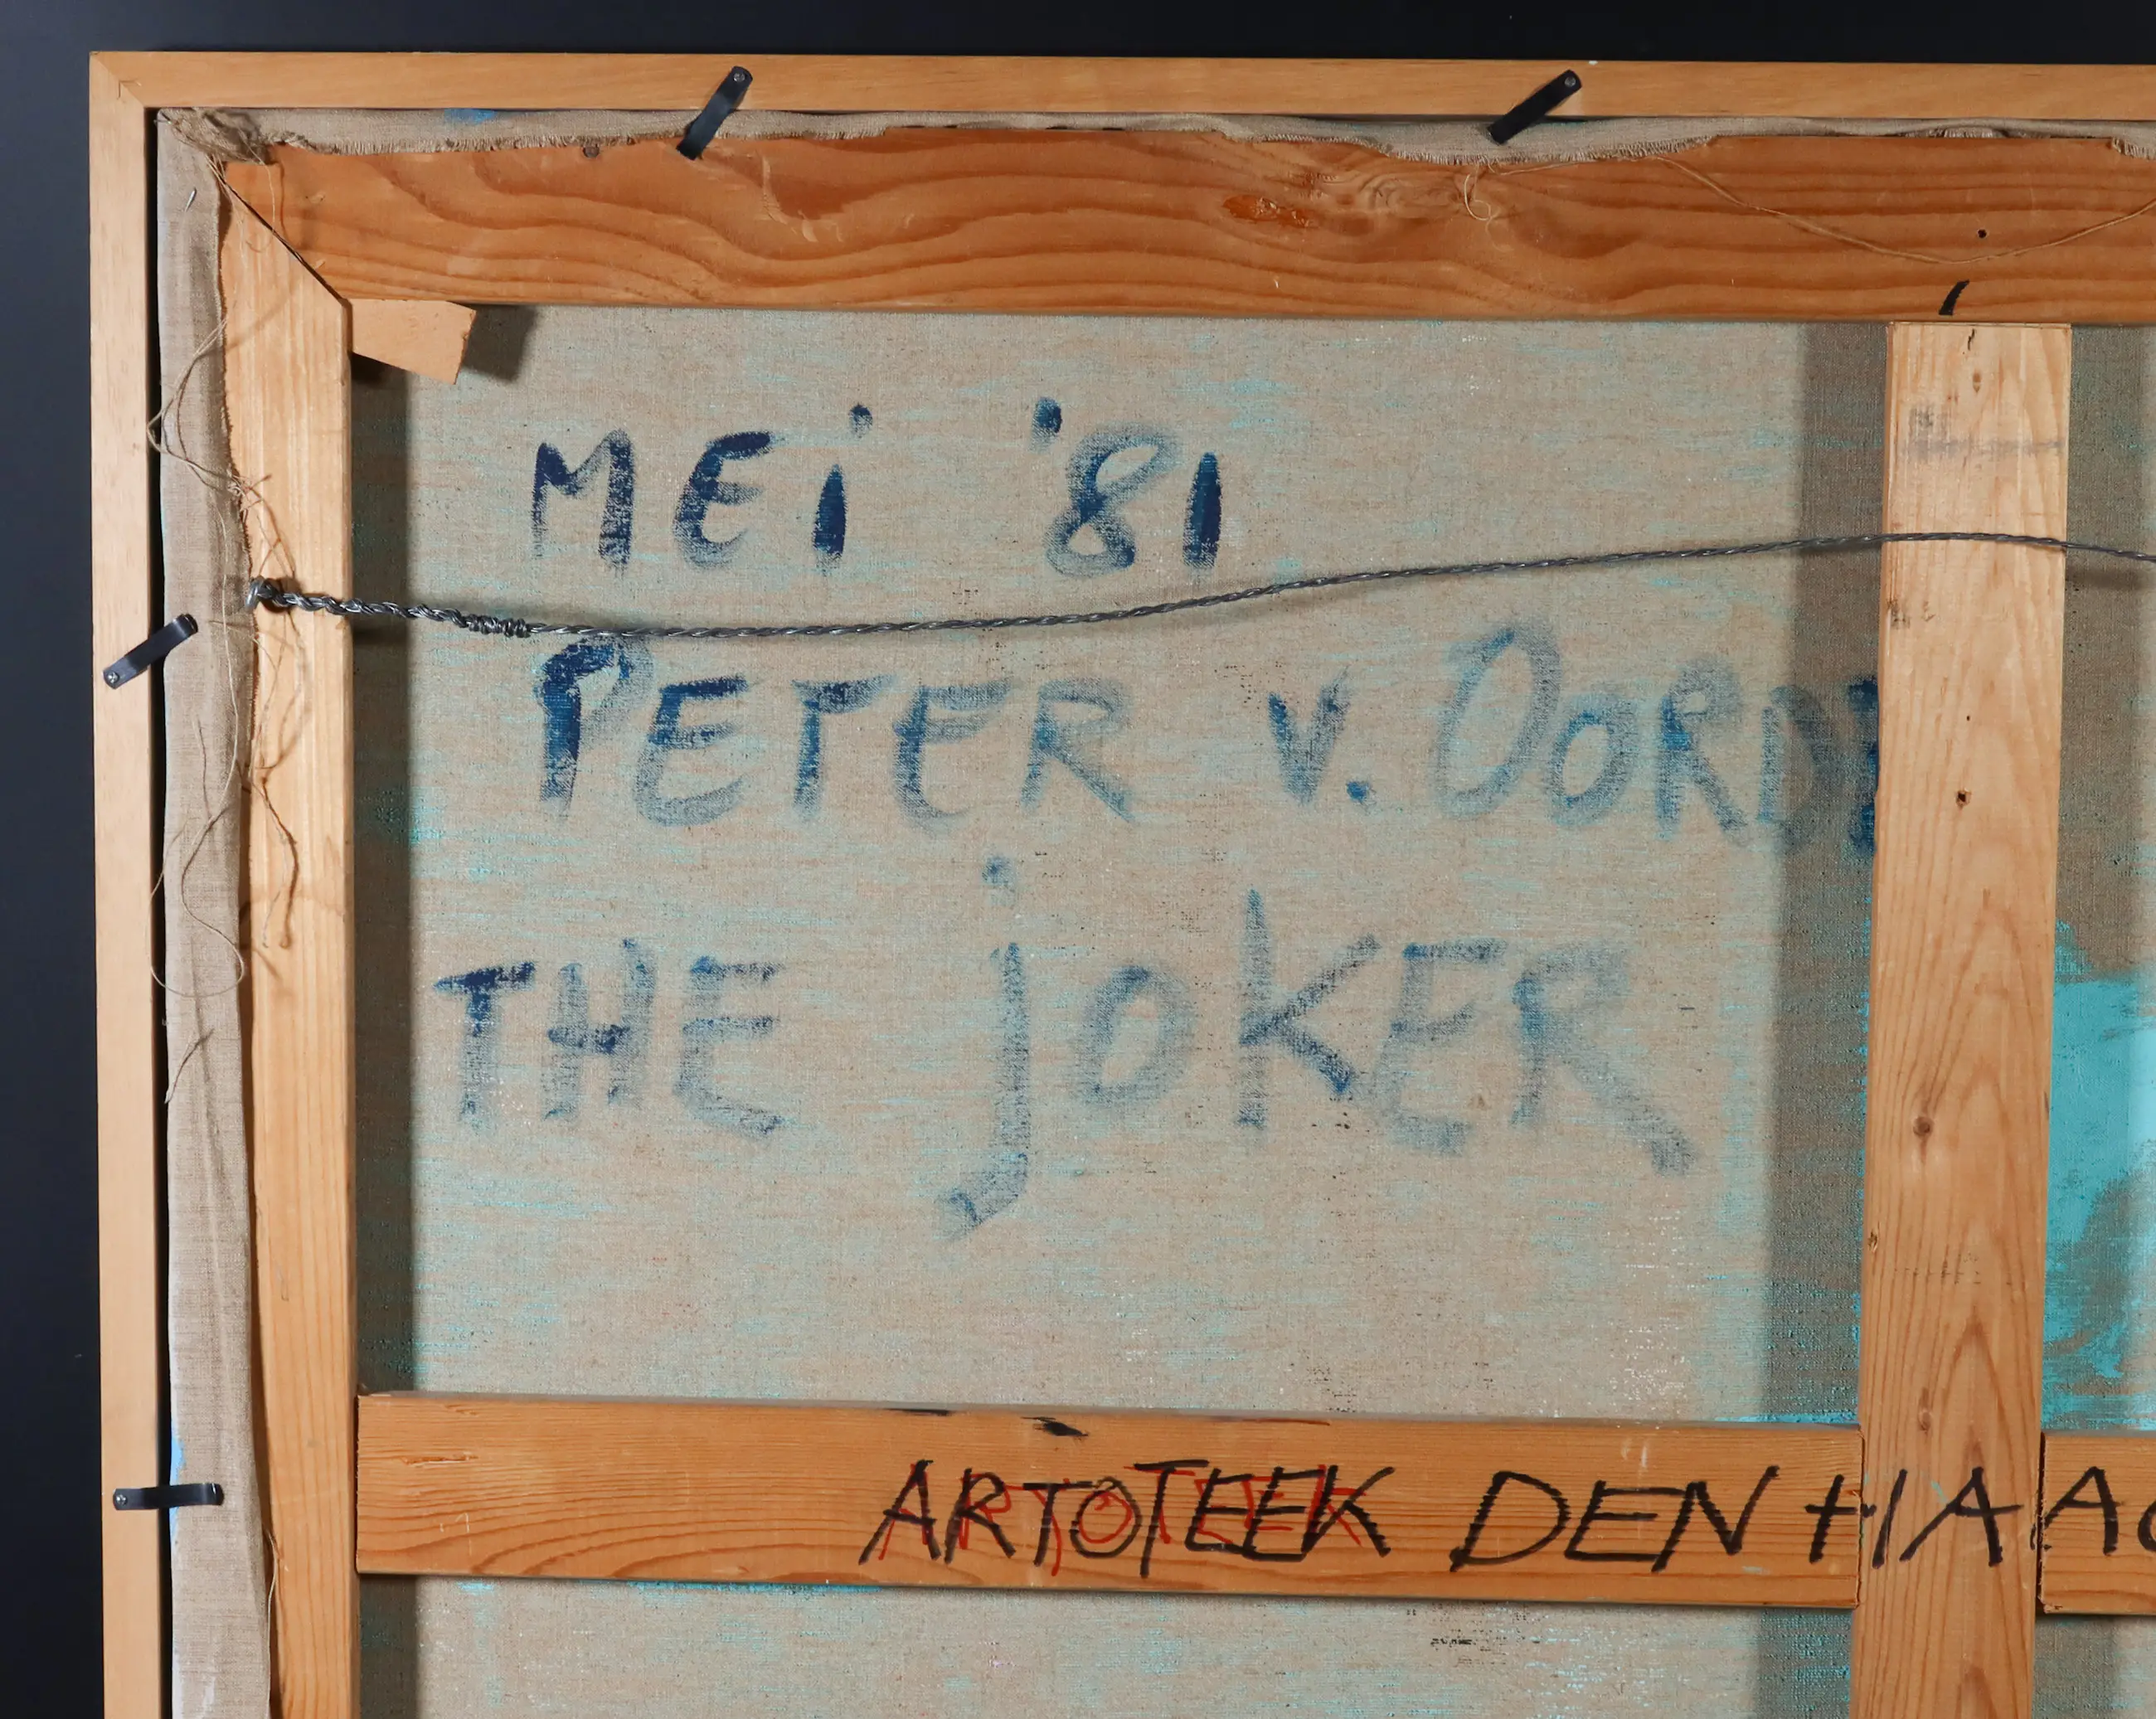 MEi '81
PETER v. OORD
THE jOKER
ARTOTEEK DEN HAAG